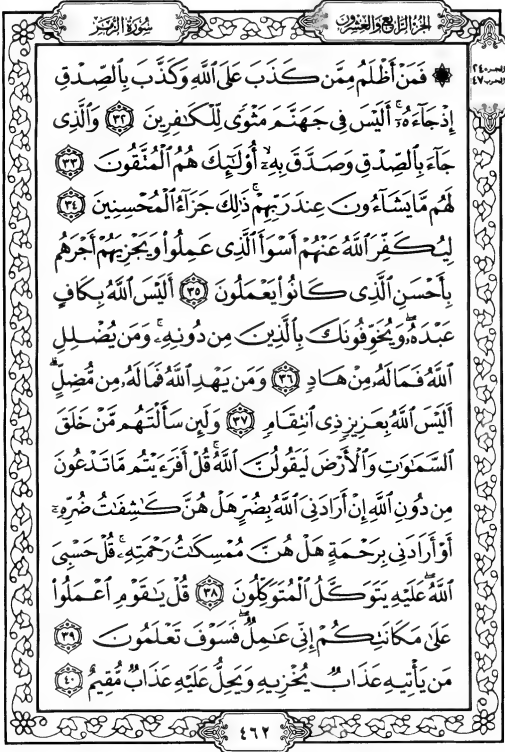 سُورَةُ الزُّمَرِ
الجُزْءُ الرَّابِعُ وَالعِشْرُونَ
الجزء ٢٤
الحزب ٤٧
۞ فَمَنْ أَظْلَمُ مِمَّن كَذَبَ عَلَى ٱللَّهِ وَكَذَّبَ بِٱلصِّدْقِ
إِذْ جَآءَهُۥٓ ۚ أَلَيْسَ فِى جَهَنَّمَ مَثْوًى لِّلْكَٰفِرِينَ ٣٢ وَٱلَّذِى
جَآءَ بِٱلصِّدْقِ وَصَدَّقَ بِهِۦٓ ۙ أُو۟لَٰٓئِكَ هُمُ ٱلْمُتَّقُونَ ٣٣
لَهُم مَّا يَشَآءُونَ عِندَ رَبِّهِمْ ۚ ذَٰلِكَ جَزَآءُ ٱلْمُحْسِنِينَ ٣٤
لِيُكَفِّرَ ٱللَّهُ عَنْهُمْ أَسْوَأَ ٱلَّذِى عَمِلُوا۟ وَيَجْزِيَهُمْ أَجْرَهُم
بِأَحْسَنِ ٱلَّذِى كَانُوا۟ يَعْمَلُونَ ٣٥ أَلَيْسَ ٱللَّهُ بِكَافٍ
عَبْدَهُۥ ۖ وَيُخَوِّفُونَكَ بِٱلَّذِينَ مِن دُونِهِۦ ۚ وَمَن يُضْلِلِ
ٱللَّهُ فَمَا لَهُۥ مِنْ هَادٍ ٣٦ وَمَن يَهْدِ ٱللَّهُ فَمَا لَهُۥ مِن مُّضِلٍّ ۗ
أَلَيْسَ ٱللَّهُ بِعَزِيزٍ ذِى ٱنتِقَامٍ ٣٧ وَلَئِن سَأَلْتَهُم مَّنْ خَلَقَ
ٱلسَّمَٰوَٰتِ وَٱلْأَرْضَ لَيَقُولُنَّ ٱللَّهُ ۚ قُلْ أَفَرَءَيْتُم مَّا تَدْعُونَ
مِن دُونِ ٱللَّهِ إِنْ أَرَادَنِىَ ٱللَّهُ بِضُرٍّ هَلْ هُنَّ كَٰشِفَٰتُ ضُرِّهِۦٓ
أَوْ أَرَادَنِى بِرَحْمَةٍ هَلْ هُنَّ مُمْسِكَٰتُ رَحْمَتِهِۦ ۚ قُلْ حَسْبِىَ
ٱللَّهُ ۖ عَلَيْهِ يَتَوَكَّلُ ٱلْمُتَوَكِّلُونَ ٣٨ قُلْ يَٰقَوْمِ ٱعْمَلُوا۟
عَلَىٰ مَكَانَتِكُمْ إِنِّى عَٰمِلٌ ۖ فَسَوْفَ تَعْلَمُونَ ٣٩
مَن يَأْتِيهِ عَذَابٌ يُخْزِيهِ وَيَحِلُّ عَلَيْهِ عَذَابٌ مُّقِيمٌ ٤٠
٤٦٢